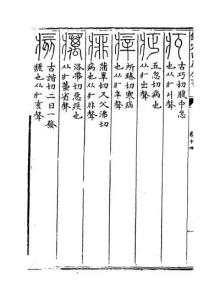 㽱
古巧切腹中急
也从疒丩聲
五忽切病
也从疒出聲
㾕
所臻切寒病
也从疒辛聲
痱
蒲罪切又父沸切
病也从疒非聲
癘
洛帶切惡疾也
从疒蠆省聲
痎
古諧切二日一發
瘧也从疒亥聲
卷十四